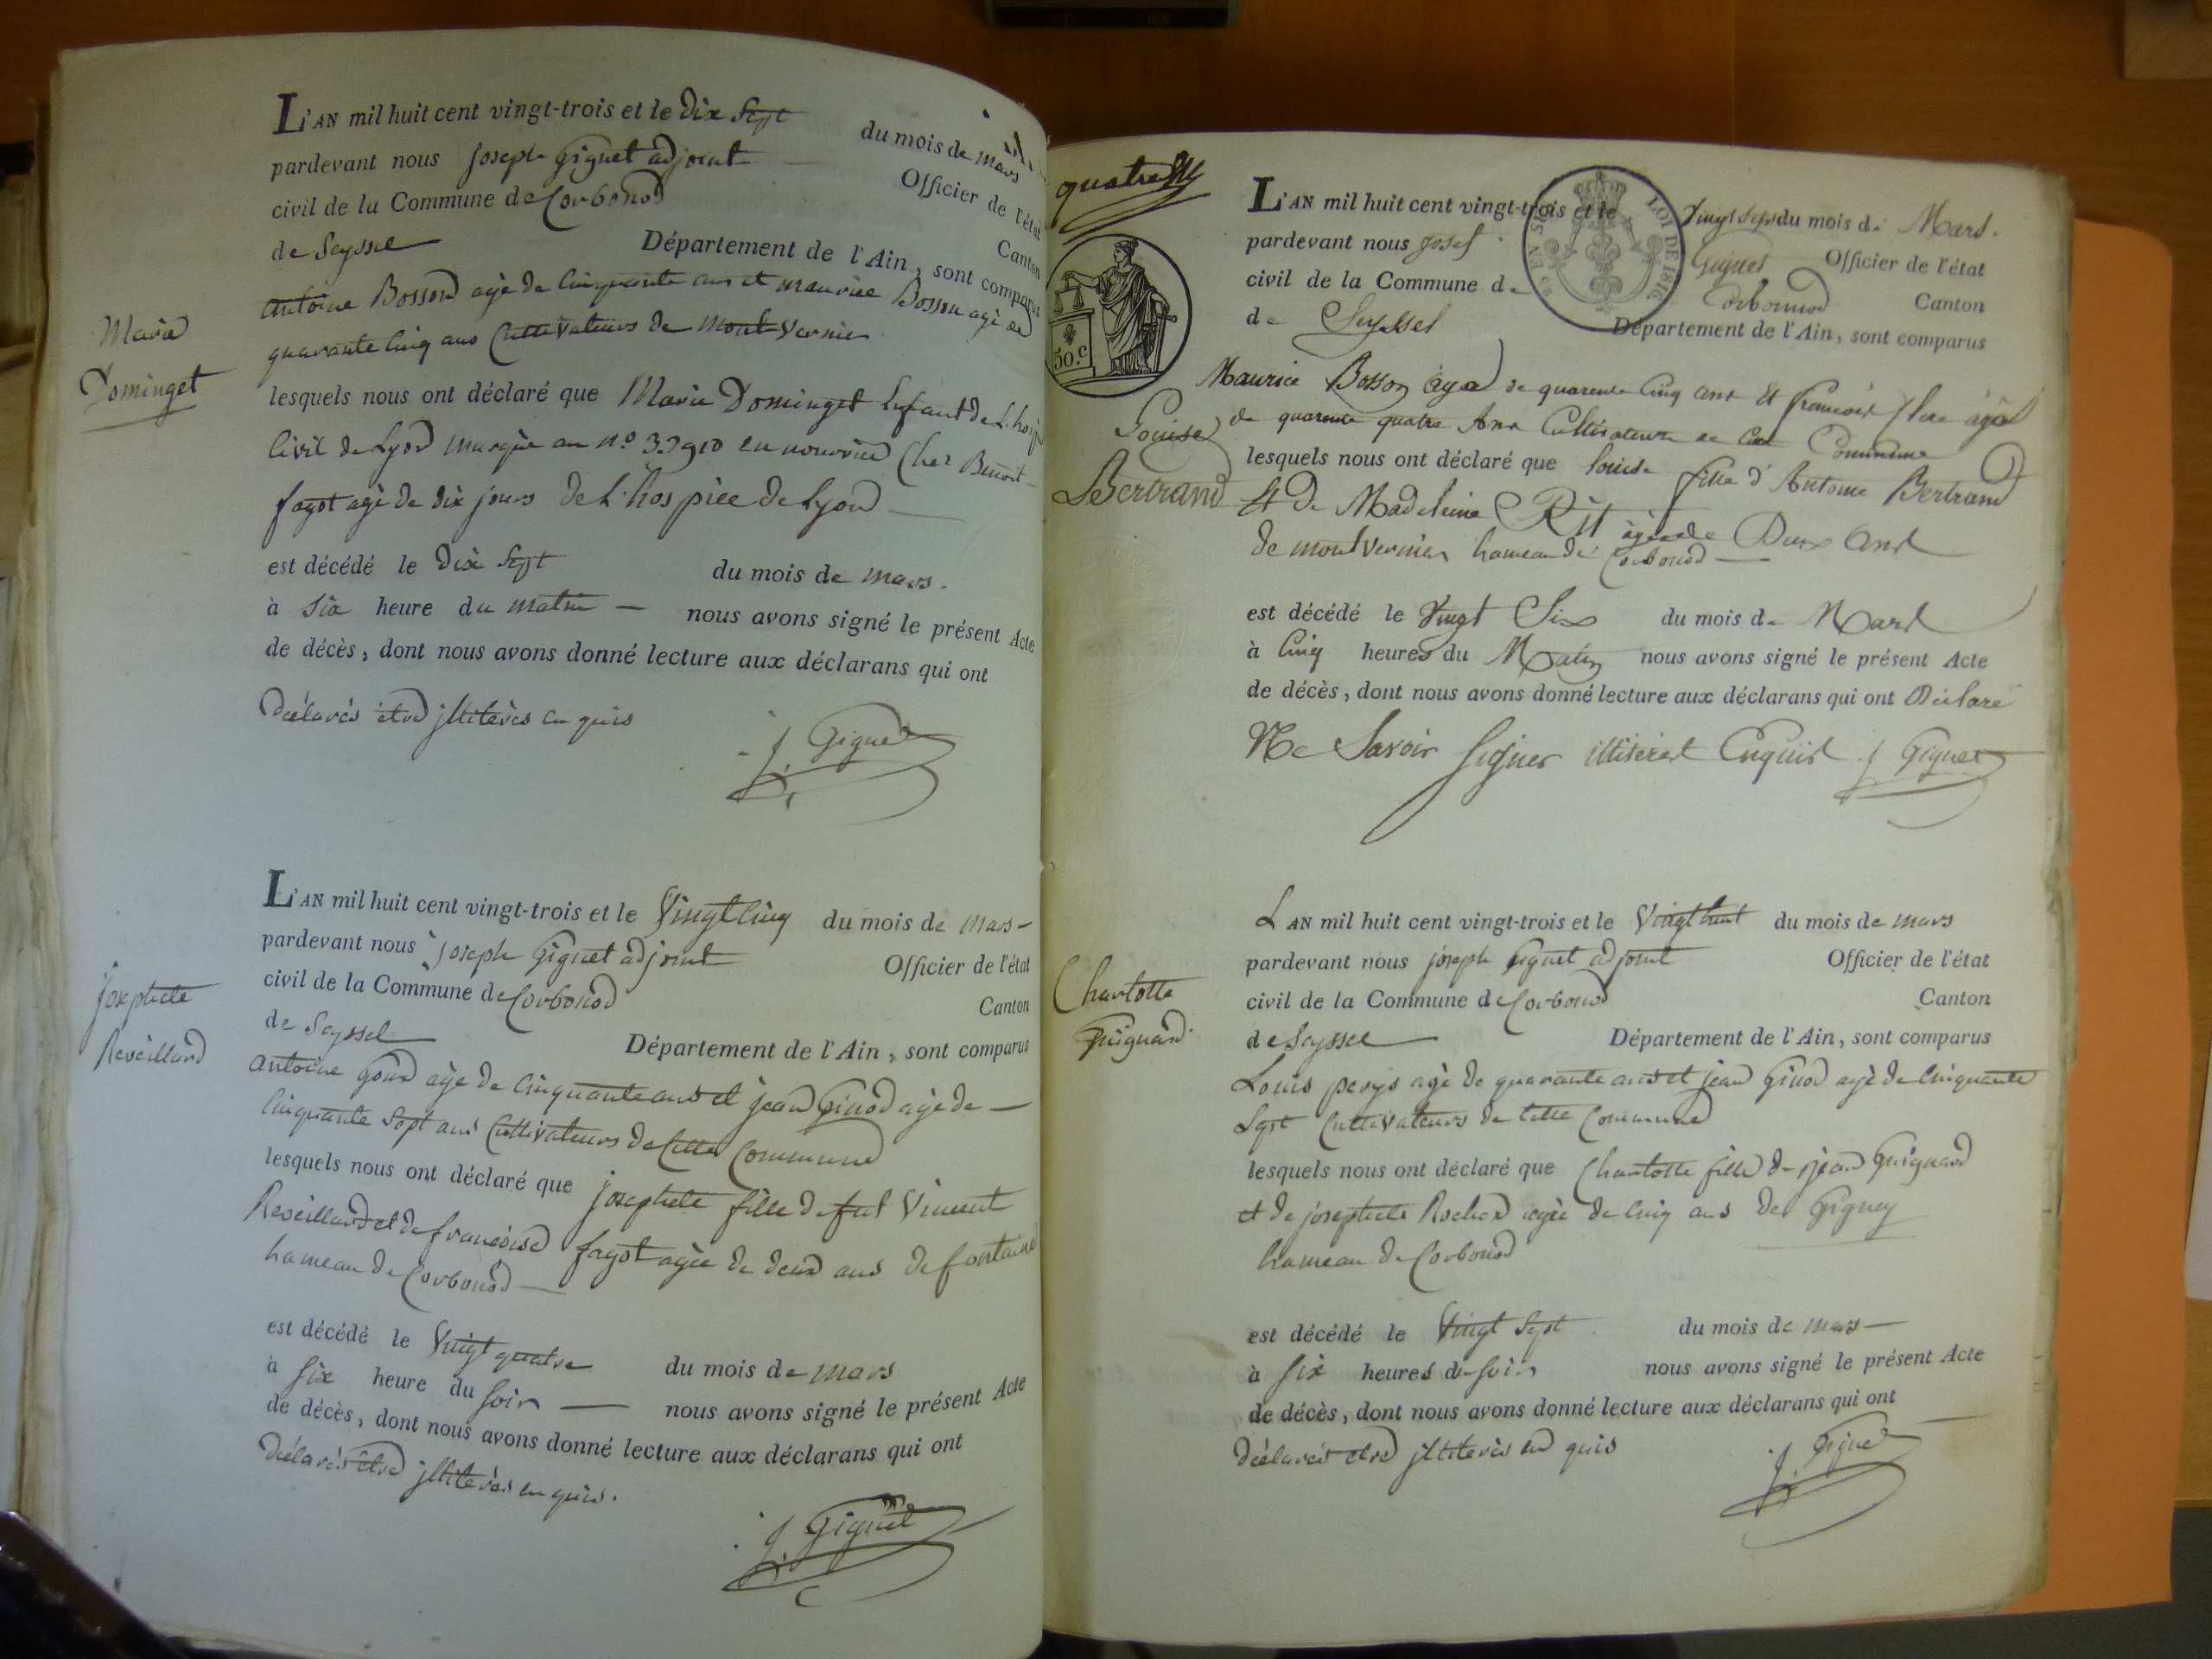 L'AN mil huit cent vingt-trois et le dix Sept du mois de mars
pardevant nous joseph Giguet adjoint Officier de l'état
civil de la Commune de Corbonod Canton
de Seyssel Département de l'Ain, sont comparus
antoine Bosson agé de Cinquante ans et maurice Bosson agé de
quarante Cinq ans Cultivateurs de mont vernier
Marie
Dominget
lesquels nous ont déclaré que Marie Dominget Enfant de L'hospice
Civil de Lyon marqué au n.º en nourrice Chez Benoit
fagot agé de dix jours de L'hospice de Lyon
est décédé le dix Sept du mois de mars.
à Six heure du matin nous avons signé le présent Acte
de décès, dont nous avons donné lecture aux déclarans qui ont
déclarés être jlliterés en quis
J. Giguet
L'AN mil huit cent vingt-trois et le Vingt Cinq du mois de mars
pardevant nous joseph Giguet adjoint Officier de l'état
civil de la Commune de Corbonod Canton
de Seyssel Département de l'Ain, sont comparus
josephete
Reveillard
antoine goud agé de Cinquante ans et jean Ginod agé de
Cinquante Sept ans Cultivateurs de Cette Commune
lesquels nous ont déclaré que josephete fille de fut Vincent
Reveillard et de francoise fagot agée de deux ans de fontaine
hameau de Corbonod
est décédé le Vingt quatre du mois de mars
à Six heure du Soir nous avons signé le présent Acte
de décès, dont nous avons donné lecture aux déclarans qui ont
déclarés être jlliterés en quis.
J. Giguet
quatre
50.c
LOI DE 1816.
L'AN mil huit cent vingt-trois et le Vingt Sept du mois de Mars.
pardevant nous Josef Giguet Officier de l'état
civil de la Commune de Corbonod Canton
de Seyssel Département de l'Ain, sont comparus
Maurice Bosson agé de quarente Cinq ans Et francois agé
de quarente quatre Ans Cultivateurs de Cete Commune
Louise
Bertrand
lesquels nous ont déclaré que louise fille d'Antoine Bertrand
Et de Madeleine agée de Deux Ans
de mont vernier hameau de Corbonod
est décédé le Vingt Six du mois de Mars
à Cinq heures du Matin nous avons signé le présent Acte
de décès, dont nous avons donné lecture aux déclarans qui ont Déclaré
Ne Savoir Signer Enquis J Giguet
L'AN mil huit cent vingt-trois et le Vingt huit du mois de mars
pardevant nous joseph Giguet adjoint Officier de l'état
civil de la Commune de Corbonod Canton
de Seyssel Département de l'Ain, sont comparus
Charlotte
Guignard
Louis agé de quarante ans et jean Ginod agé de Cinquante
Sept Cultivateurs de Cette Commune
lesquels nous ont déclaré que Charlotte fille de jean Guignard
et de josephete agée de Cinq ans de Gigney
hameau de Corbonod
est décédé le Vingt Sept du mois de mars
à Six heures du Soir nous avons signé le présent Acte
de décès, dont nous avons donné lecture aux déclarans qui ont
déclarés etre jlliterés en quis
J. Giguet